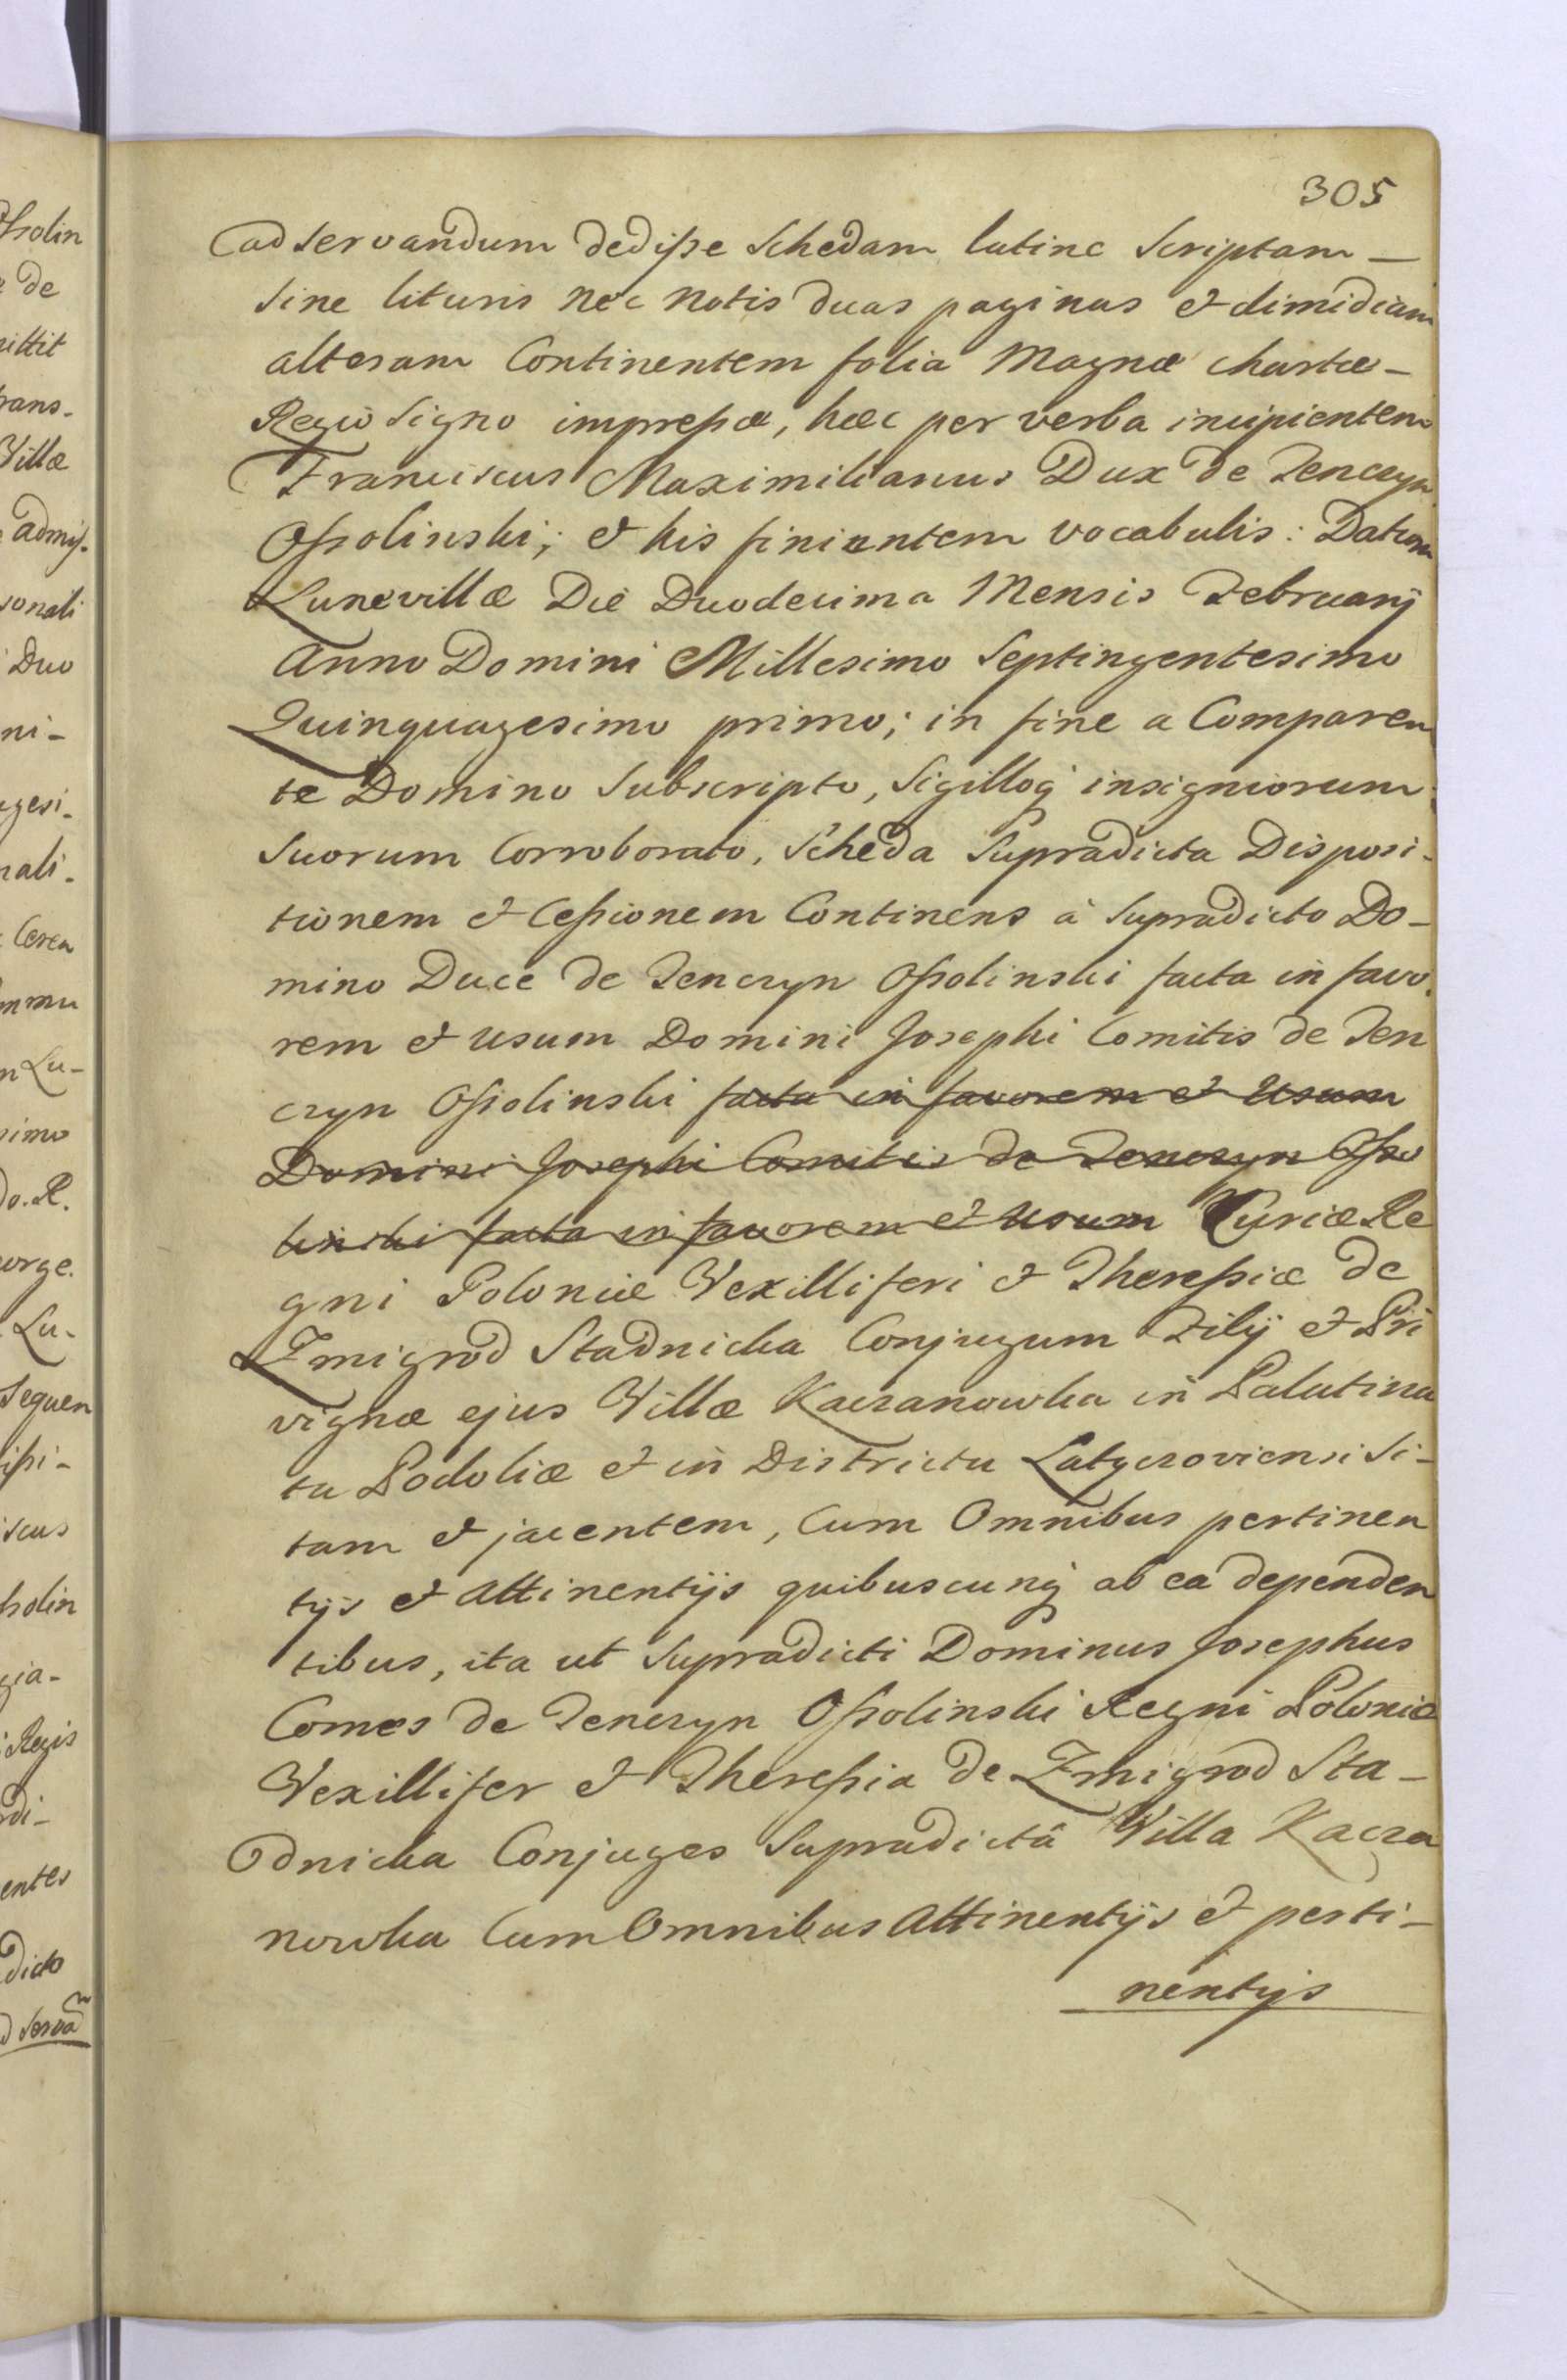 305
adservandum dedisse Schedam latine Scriptam —
Sine lituris nec notis duas paginas et dimidiam
alteram Continentem folia Magnæ chartæ —
Regio Signo impressæ, hæc per verba incipientem
Franciscus Maximilianus Dux de Tenczyn
Ossolinski; et his finientem vocabulis: Datum
Lunevillæ Die Duodecima Mensis Februarij
Anno Domini Millesimo Septingentesimo
Quinquagesimo primo; in fine a Comparen
te Domino Subscripto, Sigilloq insigniorum
Suorum Corroborato, Scheda Supradicta Disposi-
tionem et Cessionem Continens à Supradicto Do-
mino Duce de Tenczyn Ossolinski facta in favo
rem et usum Domini Josephi Comitis de Ten
czyn Ossolinski facta in favorem et Usum
Domini Josephi Comitis de Tenczyn Osso
linski facta in favorem et Usum Curiæ Re
gni Poloniæ Vexilliferi et Theressiæ de
Zmigrod Stadnicka Conjugum Filij et Pri
vignæ ejus Villæ Kaczanowka in Palatina
tu Podoliæ et in Districtu Latyczoviensi Si-
tam et jacentem, Cum Omnibus pertinen
tijs et Attinentijs quibuscunq ab ea dependen
tibus, ita ut Supradicti Dominus Josephus
Comes de Tenczyn Ossolinski Regni Poloniæ
Vexillifer et Theressia de Zmigrod Sta-
dnicka Conjuges Supradictâ Villa Kacza
nowka Cum Omnibus Attinentijs et perti-
nentijs